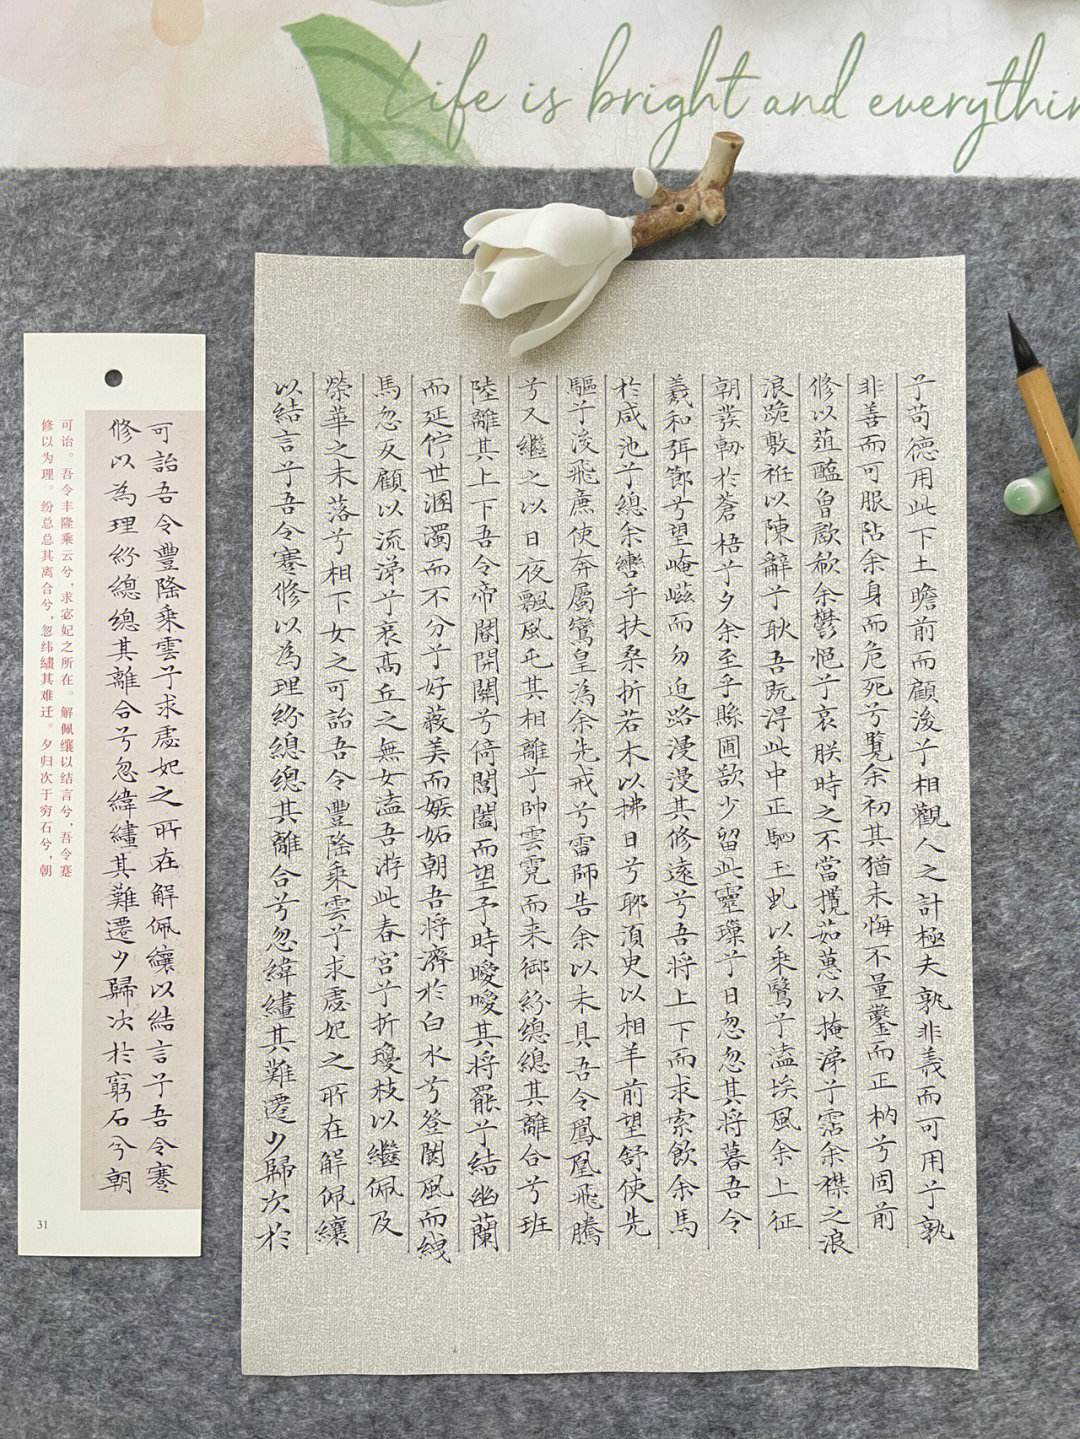 Life is bright and everythin
兮苟德用此下土瞻前而顧後兮相觀人之計極夫孰非義而可用兮孰
非善而可服阽余身而危死兮覽余初其猶未悔不量鑿而正枘兮固前
修以菹醢曾歔欷余鬱悒兮哀朕時之不當攬茹蕙以掩涕兮霑余襟之浪
浪跪敷衽以陳辭兮耿吾既得此中正駟玉虬以乘鷖兮溘埃風余上征
朝發軔於蒼梧兮夕余至乎縣圃欲少留此靈璅兮日忽忽其将暮吾令
羲和弭節兮望崦嵫而勿迫路漫漫其修遠兮吾将上下而求索飲余馬
於咸池兮總余轡乎扶桑折若木以拂日兮聊須臾以相羊前望舒使先
驅兮後飛廉使奔屬鸞皇為余先戒兮雷師告余以未具吾令鳳凰飛騰
兮又繼之以日夜飄風屯其相離兮帥雲霓而来御紛總總其離合兮班
陸離其上下吾令帝閽開關兮倚閶闔而望予時曖曖其将罷兮結幽蘭
而延佇世溷濁而不分兮好蔽美而嫉妬朝吾将濟於白水兮登閬風而緤
馬忽反顧以流涕兮哀高丘之無女溘吾游此春宫兮折瓊枝以繼佩及
榮華之未落兮相下女之可詒吾令豐隆乘雲兮求虙妃之所在解佩纕
以結言兮吾令蹇修以為理紛總總其離合兮忽緯繣其難遷夕歸次於
可詒吾令豐隆乘雲兮求虙妃之所在解佩纕以結言兮吾令蹇
修以為理紛總總其離合兮忽緯繣其難遷夕歸次於窮石兮朝
可诒。吾令丰隆乘云兮，求宓妃之所在。解佩纕以结言兮，吾令蹇
修以为理。纷总总其离合兮，忽纬繣其难迁。夕归次于穷石兮，朝
31